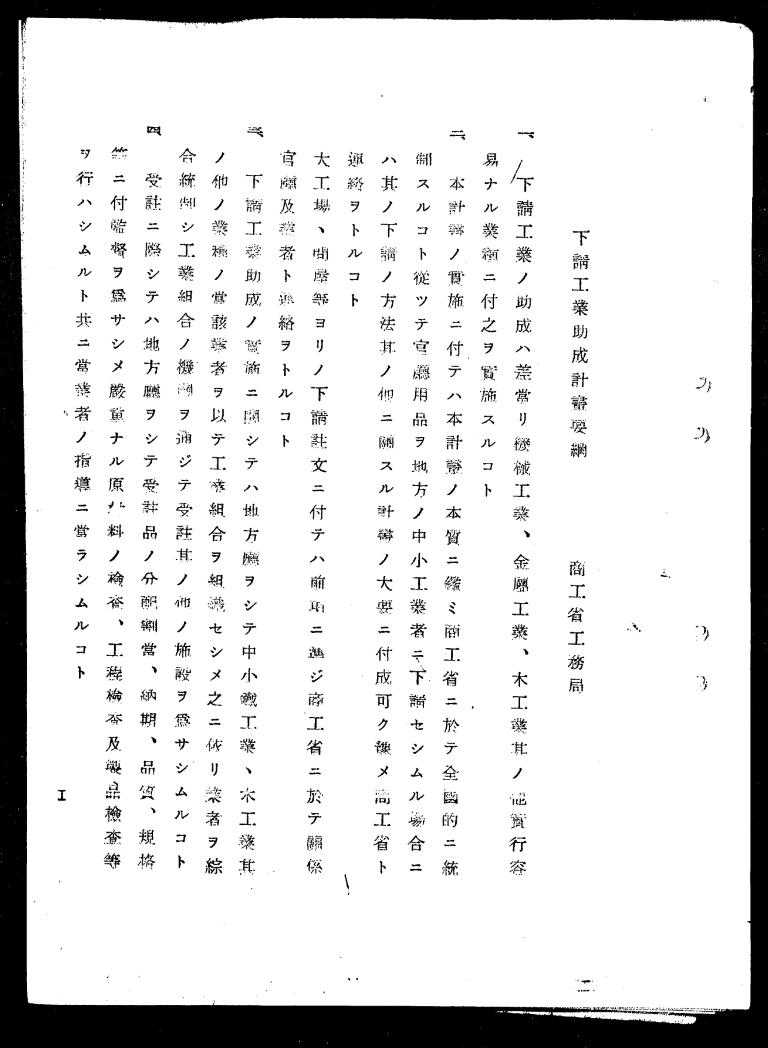 下請工業助成計畫要綱　　商工省工務局
一、下請工業ノ助成ハ差當リ機械工業、金屬工業、木工業其ノ他實行容
易ナル業種ニ付之ヲ實施スルコト
二、本計畫ノ實施ニ付テハ本計畫ノ本質ニ鑑ミ商工省ニ於テ全國的ニ統
制スルコト從ツテ官廳用品ヲ地方ノ中小工業者ニ下請セシムル場合ニ
ハ其ノ下請ノ方法其ノ他ニ關スル計畫ノ大要ニ付成可ク豫メ商工省ト
連絡ヲトルコト
大工場、問屋等ヨリノ下請註文ニ付テハ前項ニ準ジ商工省ニ於テ關係
官廳及業者ト連絡ヲトルコト
三、下請工業助成ノ實施ニ關シテハ地方廳ヲシテ中小鐵工業、木工業其
ノ他ノ業種ノ當該業者ヲ以テ工業組合ヲ組織セシメ之ニ依リ業者ヲ綜
合統制シ工業組合ノ機關ヲ通ジテ受註其ノ他ノ施設ヲ爲サシムルコト
四、受註ニ際シテハ地方廳ヲシテ受註品ノ分配割當、納期、品質、規格
等ニ付監督ヲ爲サシメ嚴重ナル原材料ノ檢査、工程檢査及製品檢査等
ヲ行ハシムルト共ニ當業者ノ指導ニ當ラシムルコト
I
二